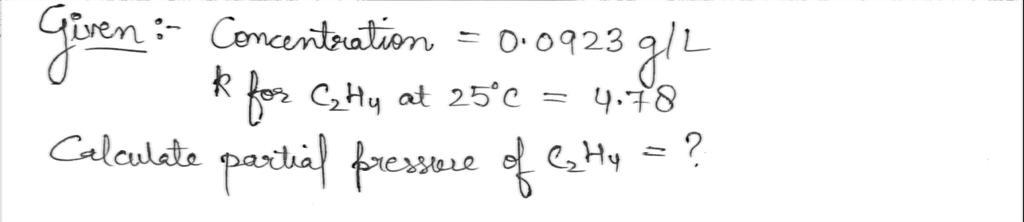 Given :- Concentration = 0.0923 g/L
k for C₂H₄ at 25°C = 4.78
Calculate partial pressure of C₂H₄ = ?